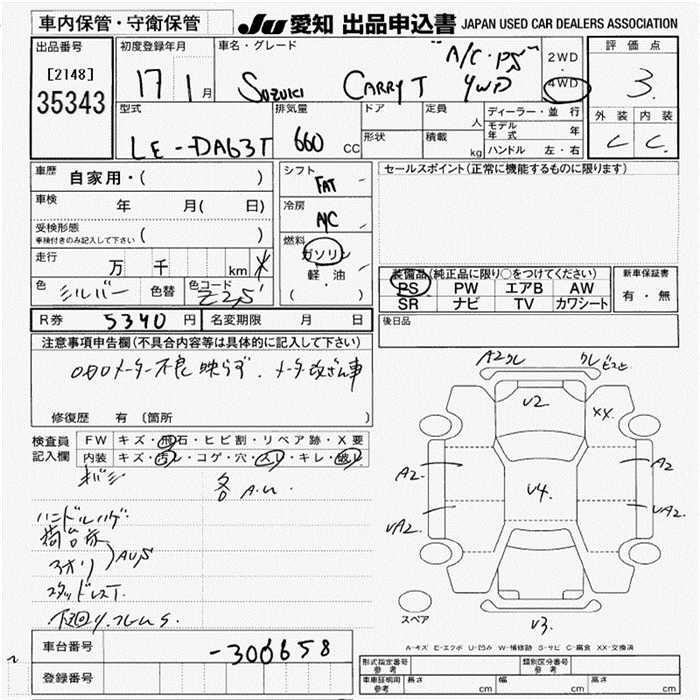 車内保管・守衛保管
JU 愛知 出品申込書 JAPAN USED CAR DEALERS ASSOCIATION
出品番号 初度登録年月 車名・グレード 2WD 評価点
[2148] 17 1月 SUZUKI CARRY T "A/C・PS" 4WD ・ 3.
35343 4WD
型式 排気量 ドア 定員 人 ディーラー・並行 外装 内装
LE-DA63T 660 CC 形状 積載 kg モデル年式 年 C C.
ハンドル 左・右
車歴 自家用・( ) シフト FAT セールスポイント(正常に機能するものに限ります)
車検 年 月( 日) 冷房 A/C
受検形態 ( )
車検付きのみ記入して下さい
走行 万 千 km 燃料 ガソリン 装備品(純正品に限り○をつけてください) 新車保証書
軽油 PS PW エアB AW 有・無
色 シルバー 色替 色コード Z2S ( ) SR ナビ TV カワシート
R券 5340円 名変期限 月 日 後日品
注意事項申告欄(不具合内容等は具体的に記入して下さい)
ODOメーター不良 映らず. メーター改ざん車
修復歴 有 (箇所 )
A2 クレ クレ ビスと
V2 XX
検査員記入欄 FW キズ・飛石・ヒビ割・リペア跡・X要
内装 キズ・汚レ・コゲ・穴・スリ・キレ・破レ
各A.U.
A2 V4 A2
ハンドルハゲ
UA2 UA2
荷台
アオリ AUS
スタッドレスT.
下回り.フレームS.
スペア V3
A-キズ E-エクボ U-凹み W-補修跡 S-サビ C-腐食 XX-交換済
車台番号 -300658
型式指定番号 参考 類別区分番号 参考
登録番号 車庫証明用 参考 長さ cm 幅 cm 高さ cm